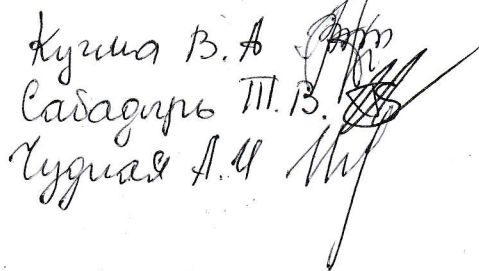 Кучма В. А
Сабадырь Т. В.
Чудная А. И